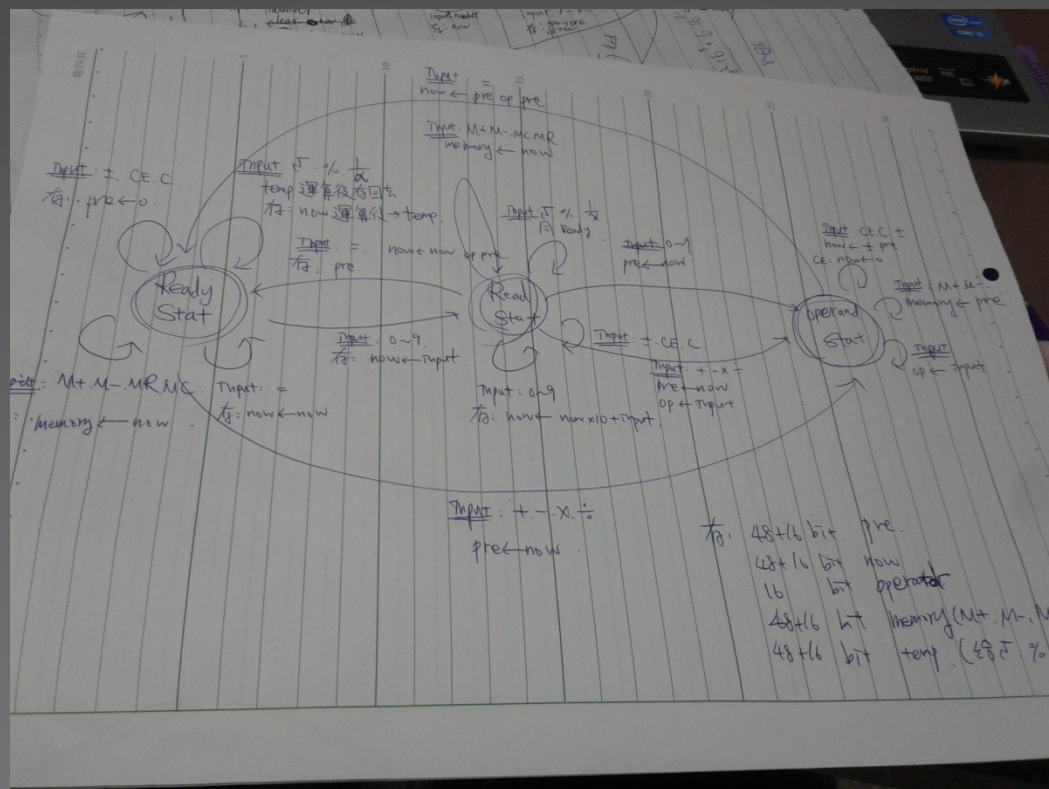 Input =
now ← pre op pre
Input: M+ M- MC MR
memory ← now
Input: ±. CE. C
存: pre←0
Input √ . % 1/x
temp 運算後存回去
存: now 運算後→temp.
Input: =. now←now op pre
存: pre
Input √ % 1/x
同 Ready
Input: 0~9
pre←now
Input CE C ±
now ← ± pre
CE: now←0
Input: M+ M-
memory ← pre
Input
op ← input
Ready
Stat
Read
Stat
operand
Stat
Input: 0~9
存: now←Input
Input: ±. CE. C
Input: + - × ÷
pre←now
op←Input
M+. M-. MR. MC
memory ← now
Input: =
存: now←now
Input: 0~9
存: now← now×10+Input
Input: +. -. ×. ÷
pre←now
存: 48+16 bit pre.
48+16 bit now
16 bit operator
48+16 bit memory (M+. M-.
48+16 bit temp. ( √ %
5
10
15
intel
CORE i5